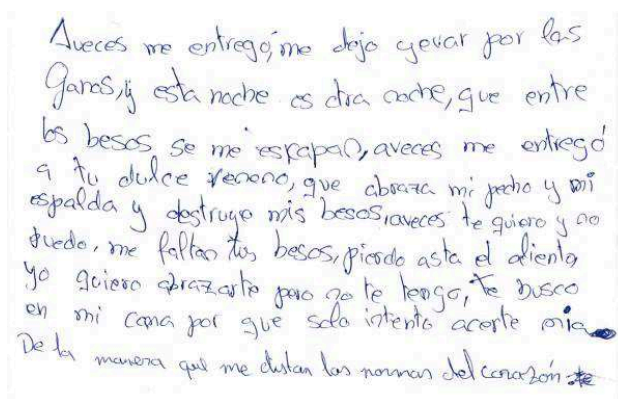 Aveces me entregó, me dejo yevar por las
Ganas, y esta noche es otra noche, que entre
los besos se me escapan, aveces me entregó
a tu dulce veneno, que abraza mi pecho y mi
espalda y destruye mis besos, aveces te quiero y no
puedo, me faltan tus besos, pierdo asta el aliento
yo quiero abrazarte pero no te tengo, te busco
en mi cama por que solo intento acerte mia
De la manera que me dictan las normas del corazón